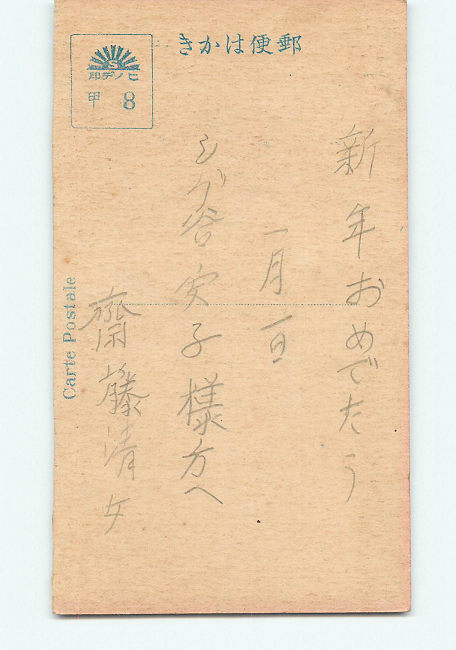 きかは便郵
ヒノデ印
甲 8
Carte Postale
新年おめでたう
一月一日
シブ谷安子様方へ
齋藤清女